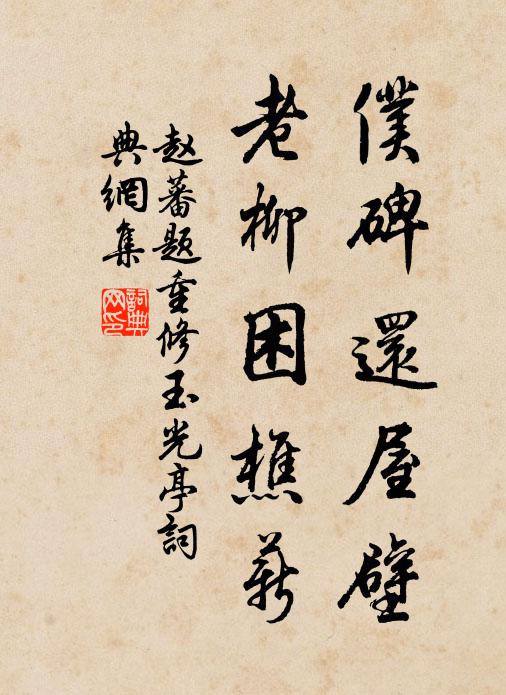 僕碑還屋壁
老柳困樵薪
赵蕃题重修玉光亭詞
典網集
詞典
网印